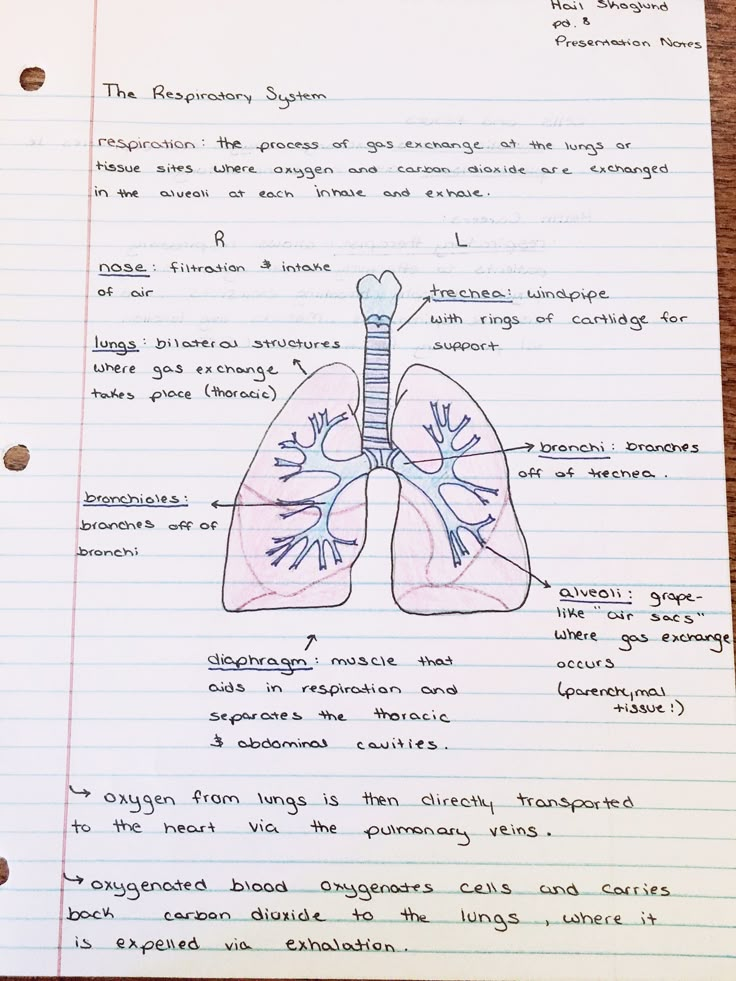 Hail Skoglund
pd. 8
Presentation Notes
The Respiratory System
respiration : the process of gas exchange at the lungs or
tissue sites where oxygen and carbon dioxide are exchanged
in the alveoli at each inhale and exhale.
R
L
nose : filtration & intake
of air
trechea : windpipe
with rings of cartlidge for
support
lungs : bilateral structures
where gas exchange
takes place (thoracic)
bronchi : branches
off of trechea .
bronchioles :
branches off of
bronchi
alveoli : grape-
like "air sacs"
where gas exchange
occurs
(parenchymal
tissue!)
diaphragm : muscle that
aids in respiration and
separates the thoracic
& abdominal cavities.
↳ oxygen from lungs is then directly transported
to the heart via the pulmonary veins .
↳ oxygenated blood oxygenates cells and carries
back carbon dioxide to the lungs , where it
is expelled via exhalation .